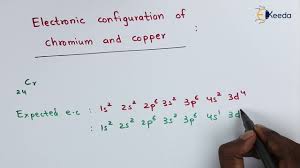 Ekeeda
Electronic configuration of
chromium and copper :
24 Cr
Expected e.c : 1s² 2s² 2p⁶ 3s² 3p⁶ 4s² 3d⁴
: 1s² 2s² 2p⁶ 3s² 3p⁶ 4s¹ 3d